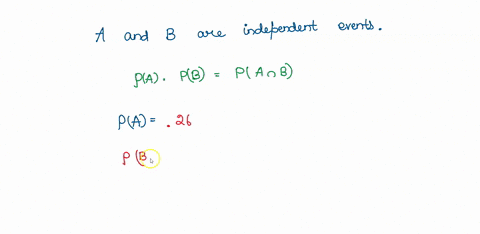 A and B are independent events.
P(A). P(B) = P(A∩B)
P(A) = .26
P(B